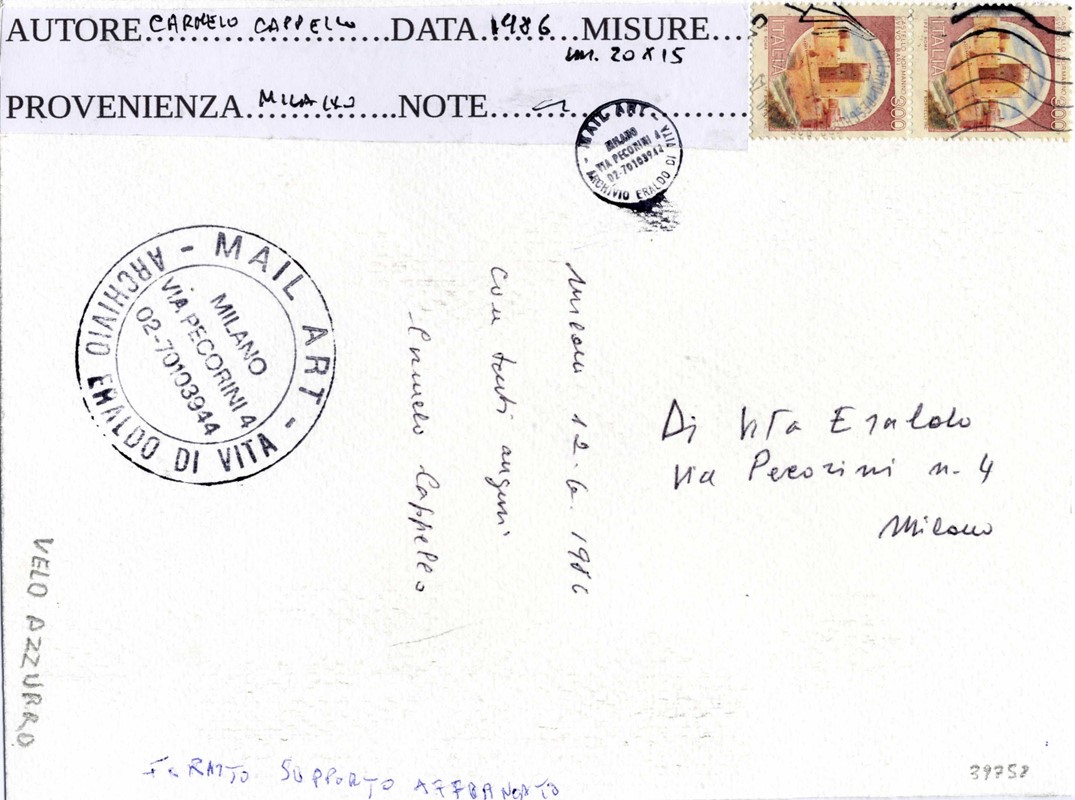 AUTORE CARMELO CAPPELLO DATA 1986 MISURE
cm. 20 X 15
PROVENIENZA MILANO NOTE
ITALIA
ITALIA
MAIL ART - ARCHIVIO ERALDO DI VITA
MILANO
VIA PECORINI 4
02-70103942
MAIL ART - ARCHIVIO ERALDO DI VITA
MILANO
VIA PECORINI 4
02-70103944
Milano 12.6.1986
con tanti auguri
Carmelo Cappello
Di Vita Eraldo
Via Pecorini n. 4
Milano
VELO AZZURRO
SUPPORTO AFFRANCATO
39758